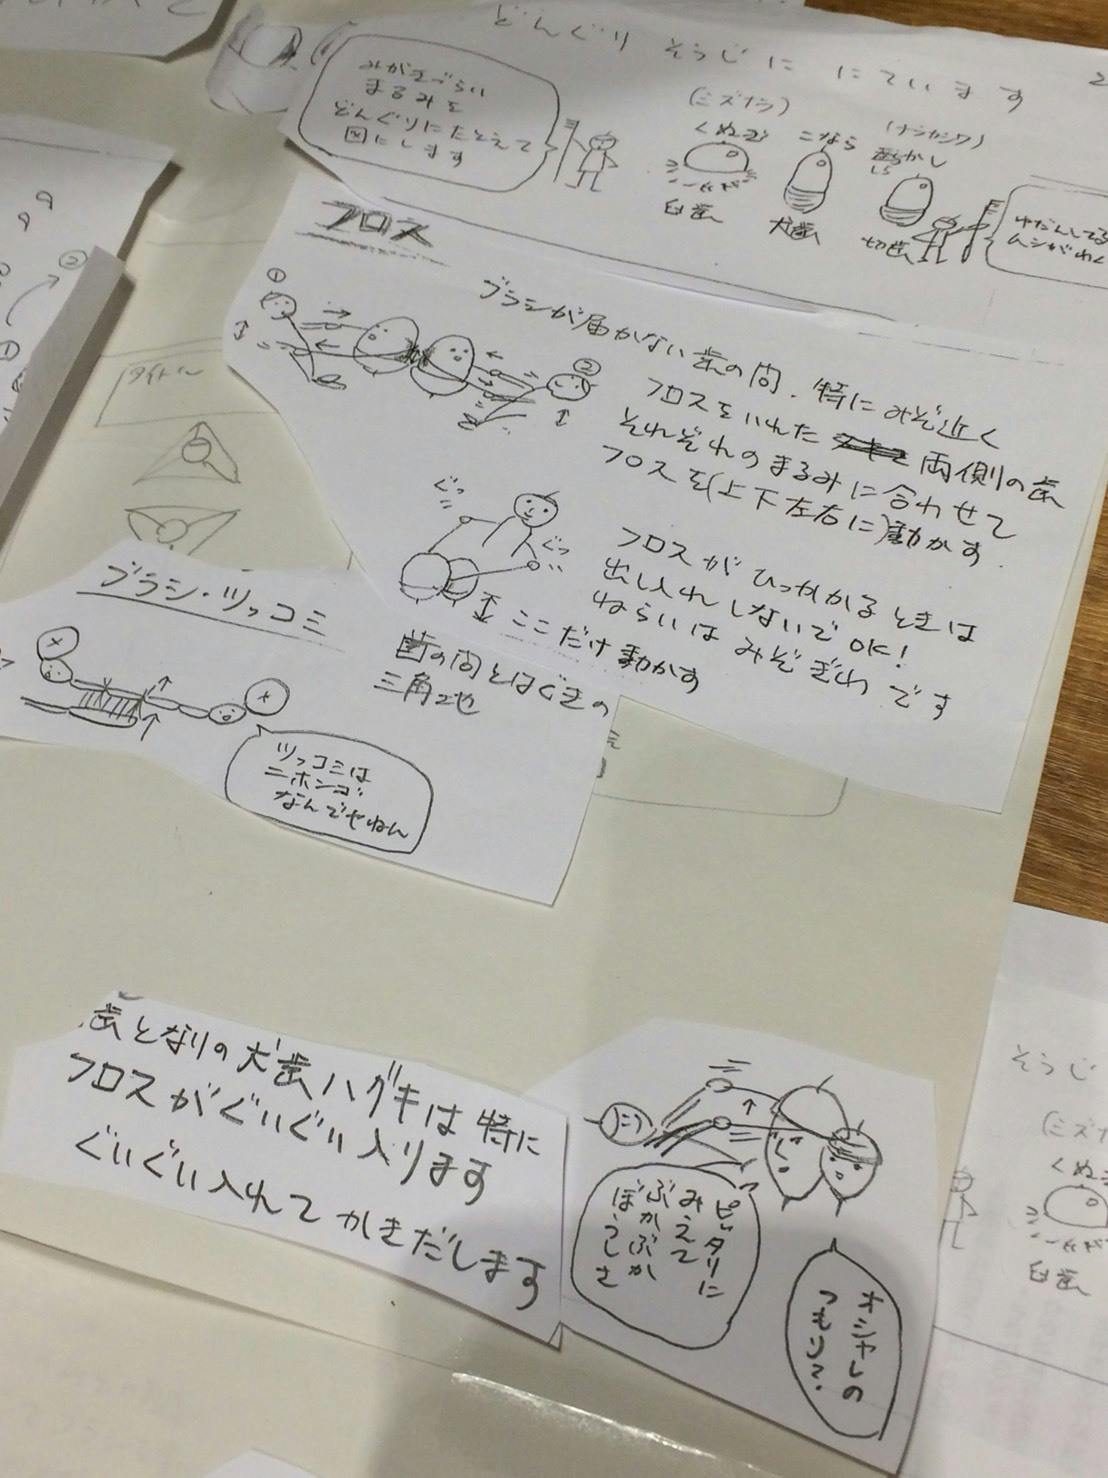 どんぐり そうじに にています
2
みがきづらい
まるみを
どんぐりにたとえて
図にします
(ミズナラ)
くぬぎ
臼歯
こなら
犬歯
(ナラガシワ)
しらかし
切歯
ゆだんしてる
ムシがわく
フロス
① ②
ブラシが届かない歯の間、特にみぞ近く
フロスをいれた 両側の歯
それぞれのまるみに合わせて
フロスを(上下左右に)動かす
フロスがひっかかるときは
出し入れしないでOK!
ねらいはみぞぎわです
ぐっ
ぐっ
ここだけ動かす
②
①
タイトル
ブラシ・ツッコミ
歯の間とはぐきの
三角地
ツッコミは
ニホンゴ
なんでやねん
歯となりの犬歯ハグキは特に
フロスがぐいぐい入ります
ぐいぐい入れてかきだします
ピッタリに
みえて
ぶかぶか
ぼうしさ
オシャレの
つもりで.
そうじ
(ミズナ
くぬぎ
臼歯